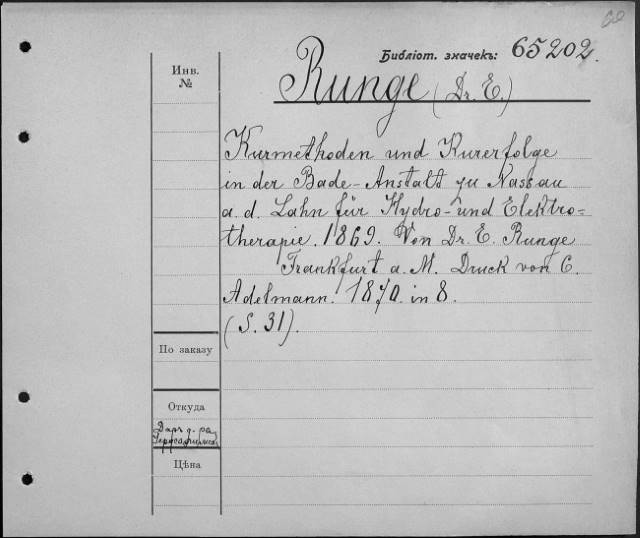 60
Библіот. значекъ: 65202.
Инв.
№
Runge (Dr. E.)
Kurmethoden und Kurerfolge
in der Bade-Anstalt zu Nassau
a. d. Lahn für Hydro- und Elektro=
therapie. 1869. Von Dr. E. Runge
Frankfurt a. M. Druck von C.
Adelmann. 1870. in 8.
(S. 31).
По заказу
Откуда
Даръ д-ра
Цѣна